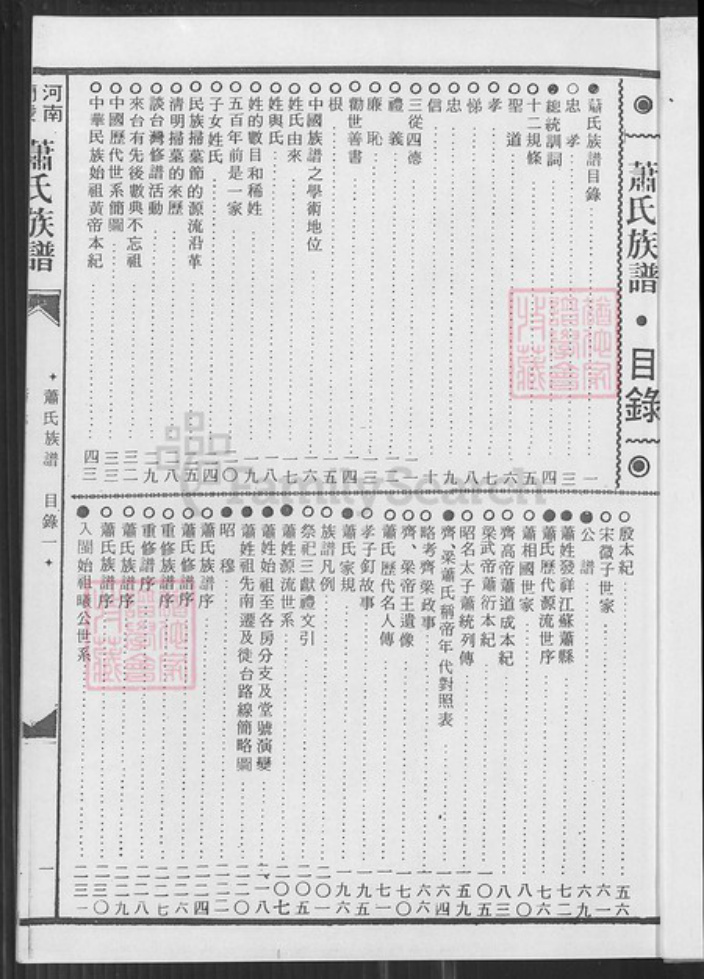 蕭氏族譜・目錄
●蕭氏族譜目錄…一
○忠 孝…三
●總統訓詞…四
○十二規條…五
○聖 道…六
○孝…七
○悌…八
○忠…九
○信…十
○三從四德…一一
○禮 義…一二
○廉 恥…一三
○勸世善書…一四
○根…一五
○中國族譜之學術地位…一六
○姓氏由來…一七
○姓與氏…一八
○姓的數目和稀姓…一九
○五百年前是一家…一九
○子女姓氏…二〇
○民族掃墓節的源流沿革…二四
○清明掃墓的來歷…二五
○談台灣修譜活動…二八
○來台有先後數典不忘祖…二九
○中國歷代世系簡圖…三二
○中華民族始祖黃帝本紀…四三
○殷本紀…五六
○宋微子世家…六一
●公 譜…六九
●蕭姓發祥江蘇蕭縣…七二
●蕭氏歷代源流世序…七六
○蕭相國世家…八〇
○齊高帝蕭道成本紀…八三
○梁武帝蕭衍本紀…一〇五
○昭名太子蕭統列傳…一五九
●齊、梁蕭氏稱帝年代對照表…一六四
○略考齊梁政事…一六六
○齊、梁帝王遺像…一七〇
○蕭氏歷代名人傳…一七一
○孝子釘故事…一九五
●蕭氏家規…一九六
○族譜凡例…二〇一
○祭祀三獻禮文引…二〇五
●蕭姓源流世系…二〇七
●蕭姓始祖至各房分支及堂號演變…二一八
●蕭姓祖先南遷及徙台路線簡略圖…二二〇
●昭 穆…二二二
○蕭氏族譜序…二二四
○蕭氏修譜序…二二六
○重修族譜序…二二七
○重修譜序…二二八
○蕭氏族譜序…二二九
○蕭氏族譜序…二三〇
●入閩始祖曦公世系…二三一
河南
蕭氏族譜
✦ 蕭氏族譜 目錄一 ✦
一
FamilySearch